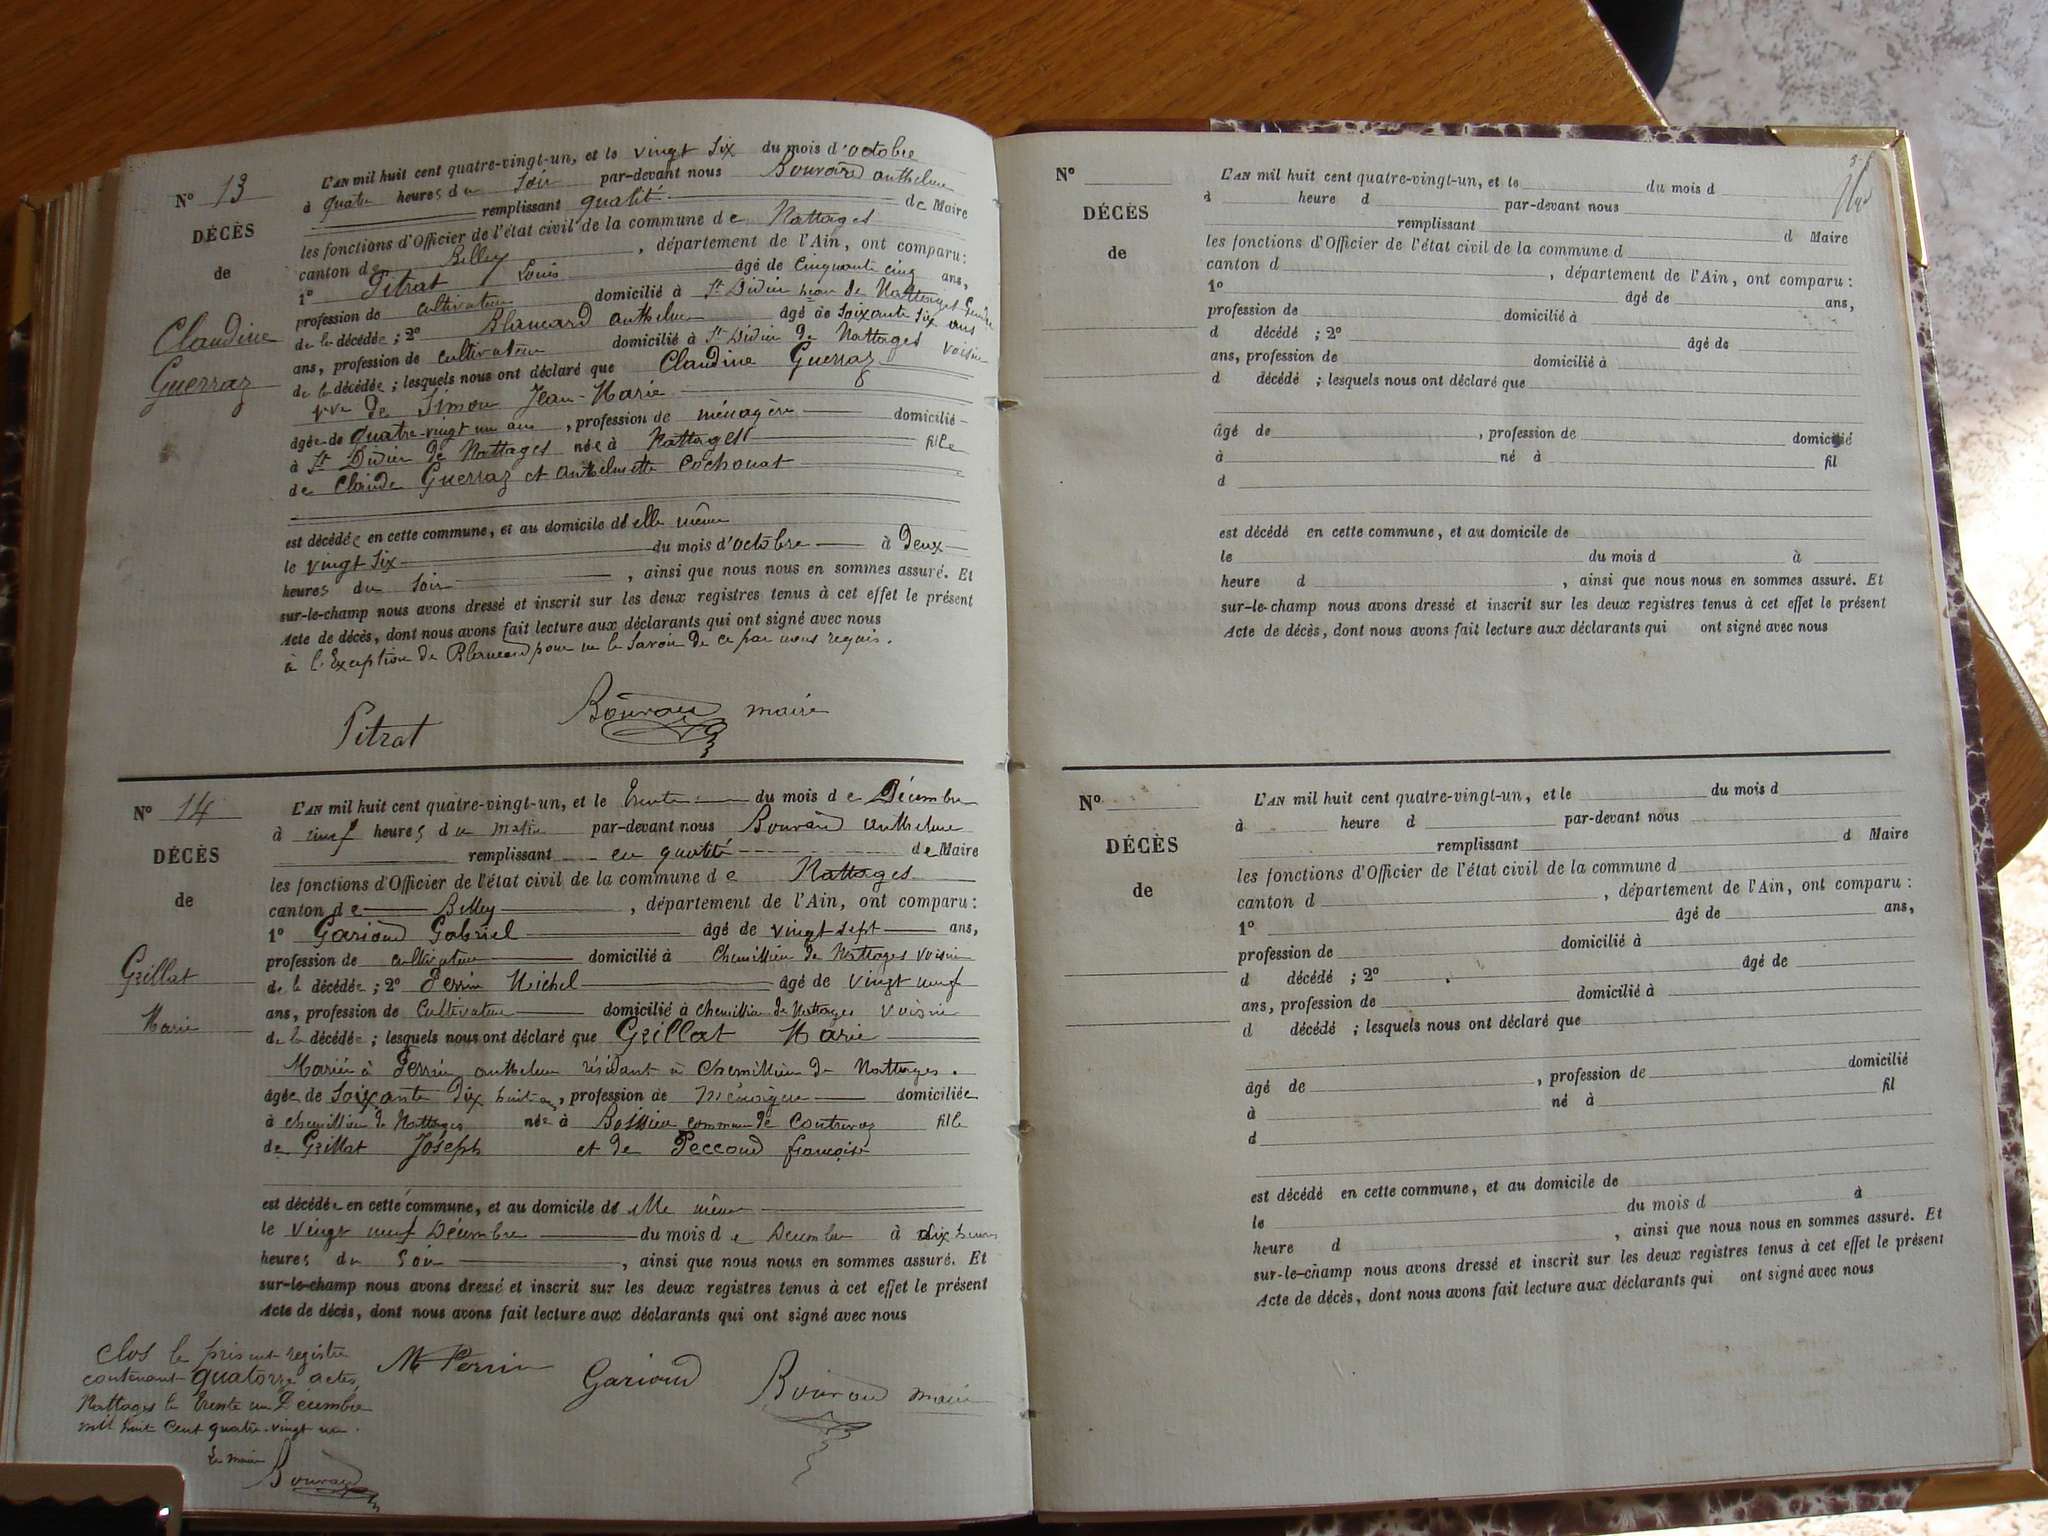 N° 13
DÉCÈS
de
Claudine
Guerraz
L'AN mil huit cent quatre-vingt-un, et le vingt six du mois d'octobre
à quatre heures du soir par-devant nous Bouvard anthelme
remplissant qualité de Maire
les fonctions d'Officier de l'état civil de la commune de Nattages
canton de Belley, département de l'Ain, ont comparu:
1° Pitrat Louis âgé de cinquante cinq ans,
profession de cultivateur domicilié à St Didier de Nattages
de la décédée; 2° anthelme âgé de soixante six ans
ans, profession de cultivateur domicilié à St Didier de Nattages voisin
de la décédée; lesquels nous ont déclaré que Claudine Guerraz
Vve de Simon Jean-Marie
âgée de quatre-vingt un ans, profession de ménagère domicilié
à St Didier de Nattages née à Nattages fille
de Claude Guerraz et anthelmette Cochonat
est décédée en cette commune, et au domicile d'elle même
le vingt six du mois d'octobre à deux
heures du soir, ainsi que nous nous en sommes assuré. Et
sur-le-champ nous avons dressé et inscrit sur les deux registres tenus à cet effet le présent
Acte de décès, dont nous avons fait lecture aux déclarants qui ont signé avec nous
à l'Exception de pour ne le savoir de ce par nous requis.
Pitrat Bouvard maire
N° 14
DÉCÈS
de
Grillat
Marie
L'AN mil huit cent quatre-vingt-un, et le trente du mois de Décembre
à neuf heures du matin par-devant nous Bouvard anthelme
remplissant en qualité de Maire
les fonctions d'Officier de l'état civil de la commune de Nattages
canton de Belley, département de l'Ain, ont comparu:
1° Garioud Gabriel âgé de vingt sept ans,
profession de cultivateur domicilié à Chemillieu de Nattages voisin
de la décédée; 2° Perrin Michel âgé de vingt neuf
ans, profession de Cultivateur domicilié à chemillieu de Nattages voisin
de la décédée; lesquels nous ont déclaré que Grillat Marie
Mariée à Perrin anthelme résidant à Chemillieu de Nattages.
âgée de Soixante dix huit ans, profession de Ménagère domiciliée
à chemillieu de Nattages née à Boissieu commune de Contrevoz fille
de Grillat Joseph et de Peccoud françoise
est décédée en cette commune, et au domicile d'elle même
le vingt neuf Décembre du mois de Decembre à dix heures
heures du soir, ainsi que nous nous en sommes assuré. Et
sur-le-champ nous avons dressé et inscrit sur les deux registres tenus à cet effet le présent
Acte de décès, dont nous avons fait lecture aux déclarants qui ont signé avec nous
M Perrin Garioud Bouvard maire
Clos le présent registre
contenant quatorze actes,
Nattages le trente un Décembre
mil huit cent quatre-vingt un.
Le maire
Bouvard
N°
DÉCÈS
de
L'AN mil huit cent quatre-vingt-un, et le du mois d
à heure d par-devant nous
remplissant d Maire
les fonctions d'Officier de l'état civil de la commune d
canton d, département de l'Ain, ont comparu:
1° âgé de ans,
profession de domicilié à
d décédé; 2° âgé de
ans, profession de domicilié à
d décédé; lesquels nous ont déclaré que
âgé de, profession de domicilié
à né à fil
d
est décédé en cette commune, et au domicile de
le du mois d à
heure d, ainsi que nous nous en sommes assuré. Et
sur-le-champ nous avons dressé et inscrit sur les deux registres tenus à cet effet le présent
Acte de décès, dont nous avons fait lecture aux déclarants qui ont signé avec nous
N°
DÉCÈS
de
L'AN mil huit cent quatre-vingt-un, et le du mois d
à heure d par-devant nous
remplissant d Maire
les fonctions d'Officier de l'état civil de la commune d
canton d, département de l'Ain, ont comparu:
1° âgé de ans,
profession de domicilié à
d décédé; 2° âgé de
ans, profession de domicilié à
d décédé; lesquels nous ont déclaré que
âgé de, profession de domicilié
à né à fil
d
est décédé en cette commune, et au domicile de
le du mois d à
heure d, ainsi que nous nous en sommes assuré. Et
sur-le-champ nous avons dressé et inscrit sur les deux registres tenus à cet effet le présent
Acte de décès, dont nous avons fait lecture aux déclarants qui ont signé avec nous